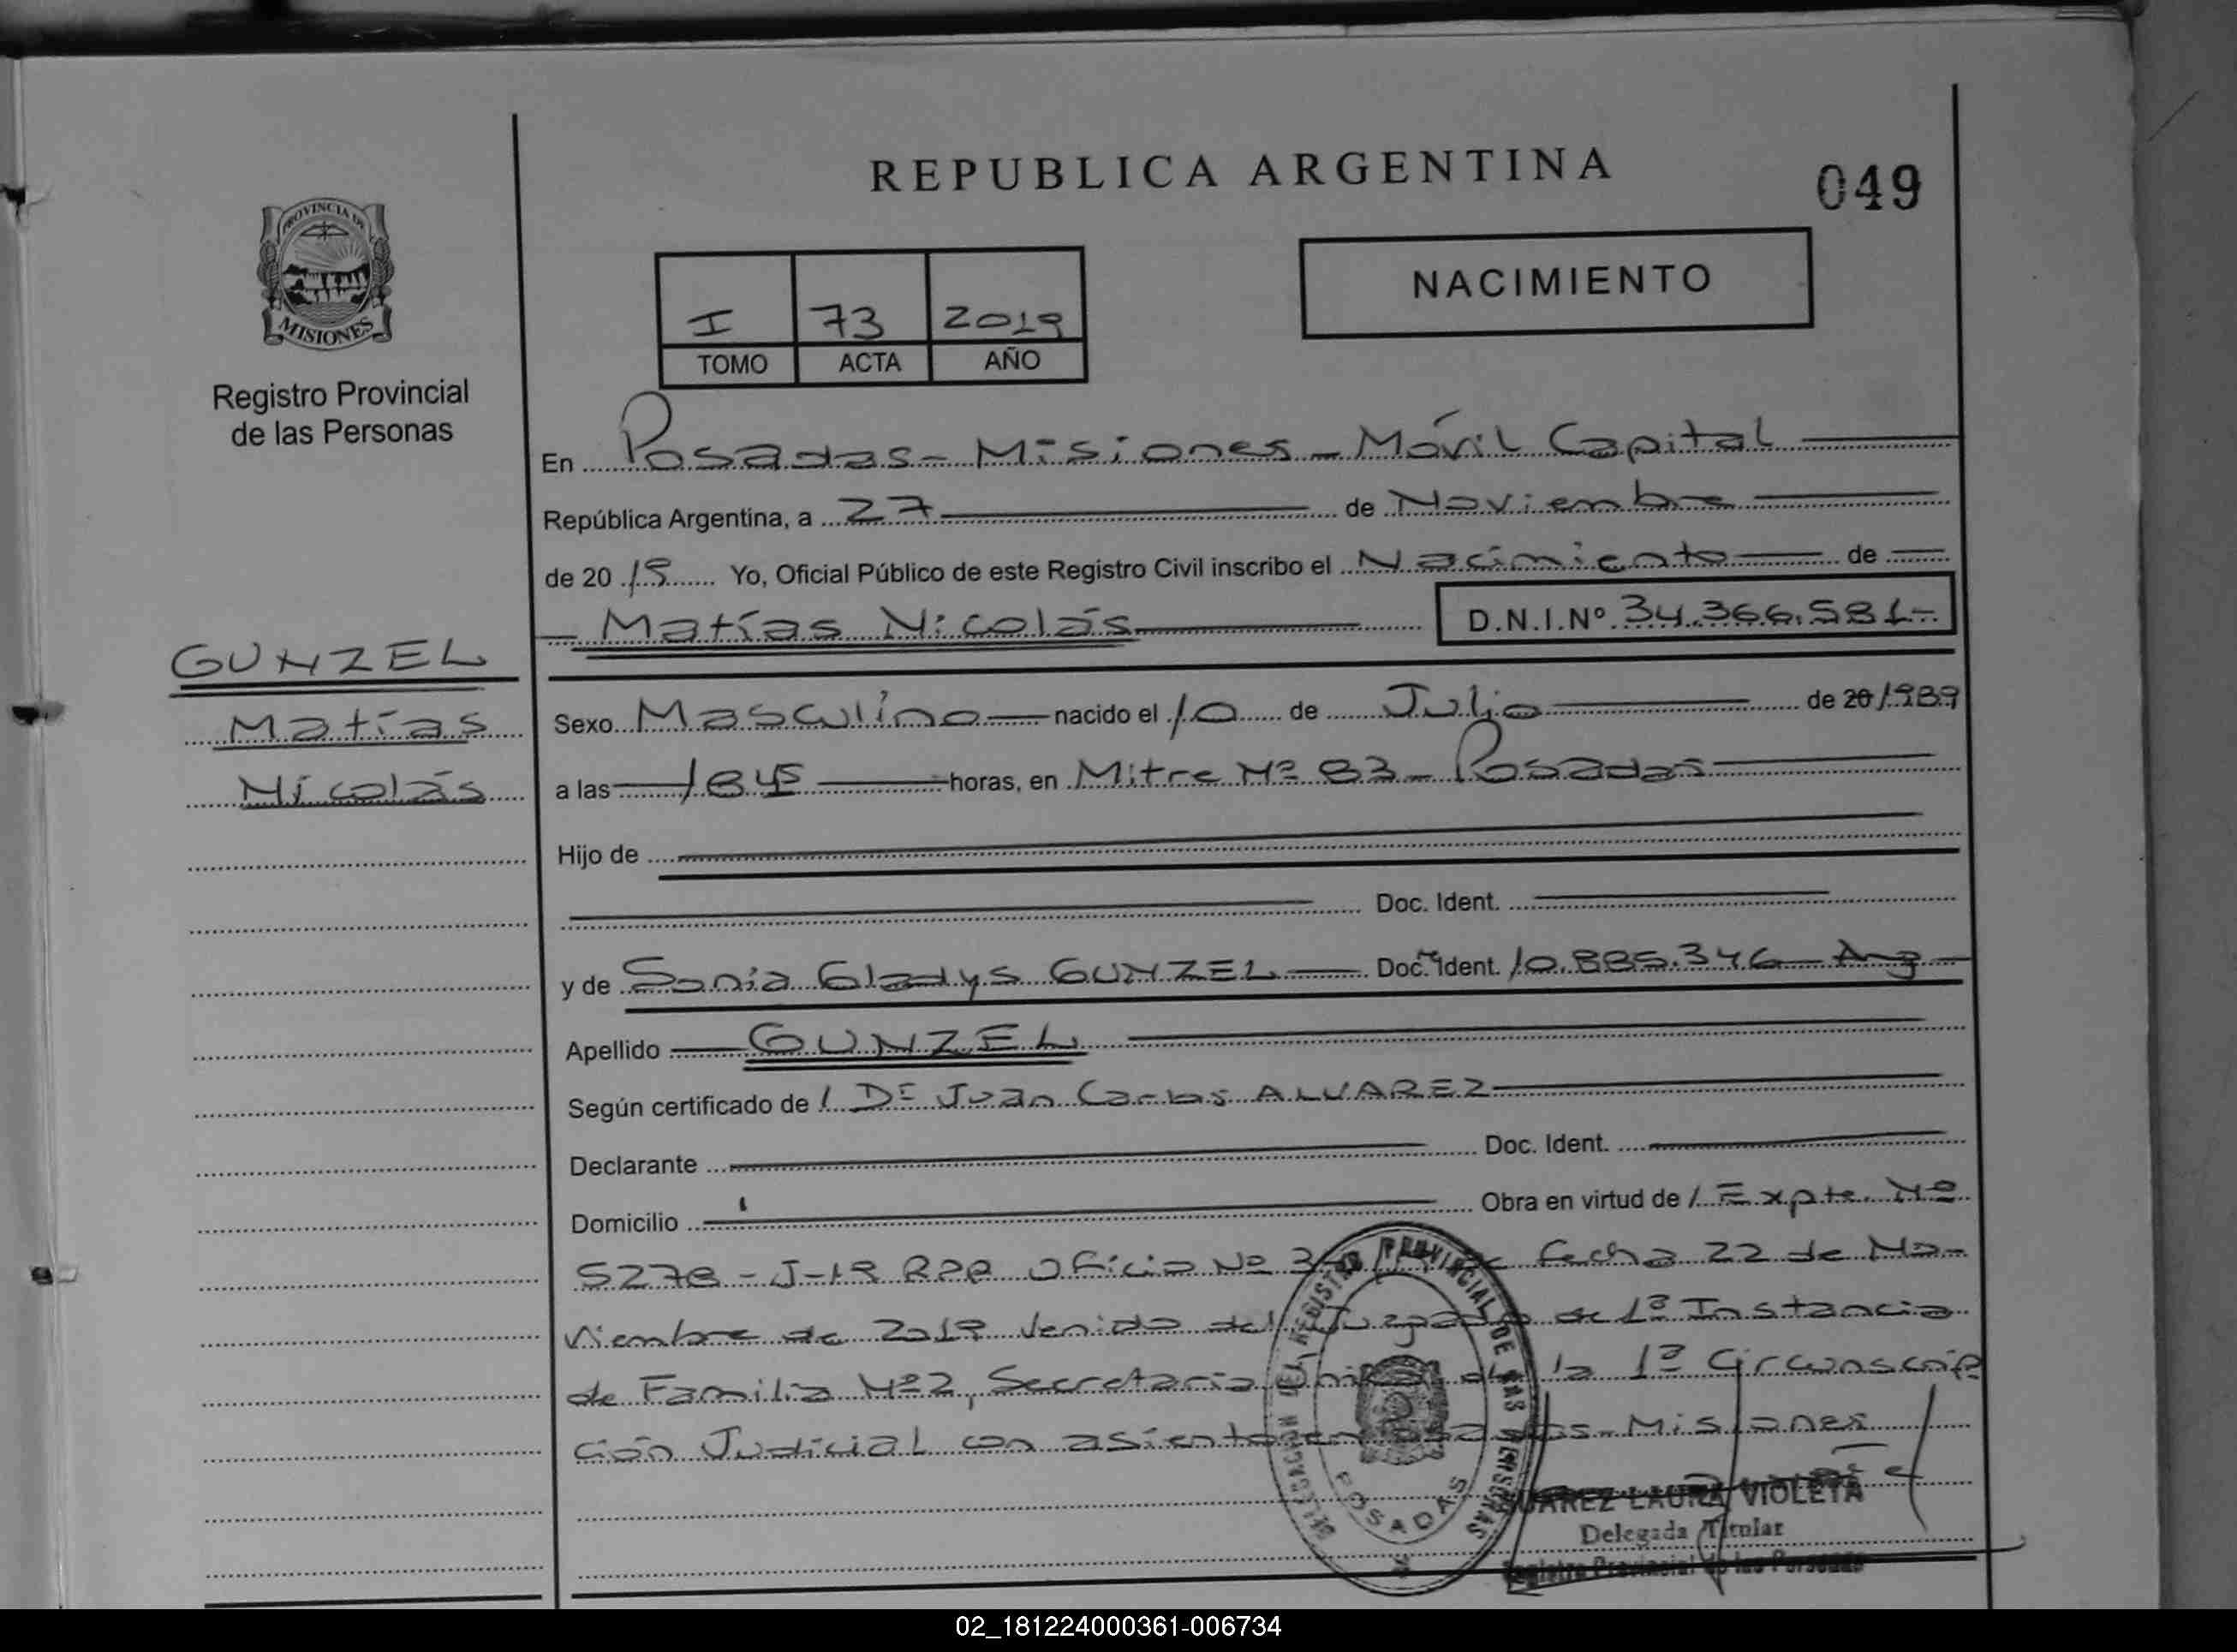 REPUBLICA ARGENTINA
049
PROVINCIA DE
MISIONES
Registro Provincial
de las Personas
I 73 2019
TOMO ACTA AÑO
NACIMIENTO
En Posadas - Misiones - Móvil Capital
República Argentina, a 27 de Noviembre
de 20 19 Yo, Oficial Público de este Registro Civil inscribo el Nacimiento de
Matías Nicolás D.N.I.Nº 34.366.581-
GUNZEL
Matías
Nicolás
Sexo Masculino nacido el 10 de Julio de 20 1989
a las 1845 horas, en Mitre Nº 83 - Posadas
Hijo de
Doc. Ident.
y de Sonia Gladys GUNZEL Doc. Ident. 10.885.346 - Arg
Apellido GUNZEL
Según certificado de / Dr Juan Carlos ALVAREZ
Declarante Doc. Ident.
Domicilio Obra en virtud de / Expte. Nº
5278 - J-19 RPP Oficio Nº fecha 22 de No-
viembre de 2019 venido del Juzgado de 1ª Instancia
de Familia Nº2, Secretaría Única de la 1ª Circunscrip
ción Judicial con asiento en Posadas - Misiones
DELEGACION DEL REGISTRO PROVINCIAL DE LAS PERSONAS
POSADAS
SUAREZ LAURA VIOLETA
Delegada Titular
Registro Provincial de las Personas
02_181224000361-006734